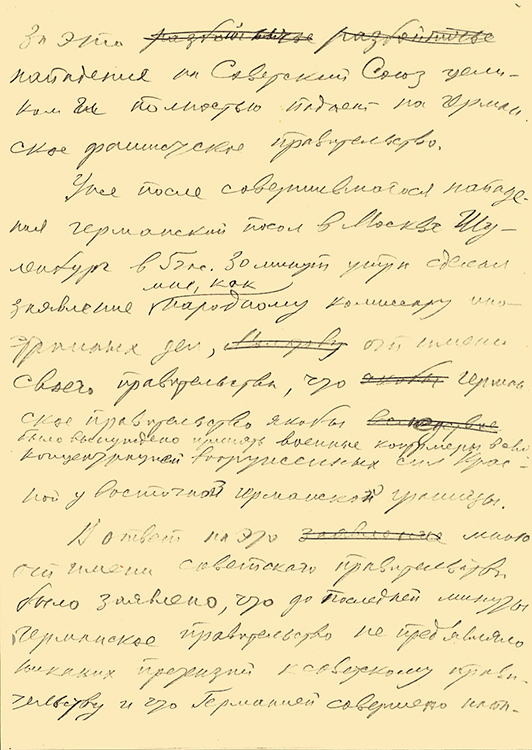 За это разбойничье разбойничье
нападение на Советский Союз цели-
ком и полностью падает на герман
ское фашистское правительство.
Уже после совершившегося нападе-
ния германский посол в Москве Шу-
ленбург в 5 час. 30 минут утра сделал
мне, как
заявление народному комиссару ино-
странных дел, Молотову от имени
своего правительства, что якобы герман
ское правительство якобы
было вынуждено принять военные контрмеры в связи
концентрацией вооруженных сил Крас-
ной у восточной германской границы.
В ответ на это заявление мною
от имени советского правительства
было заявлено, что до последней минуты
германское правительство не предъявляло
никаких претензий к советскому прави-
тельству и что Германией совершено напа-